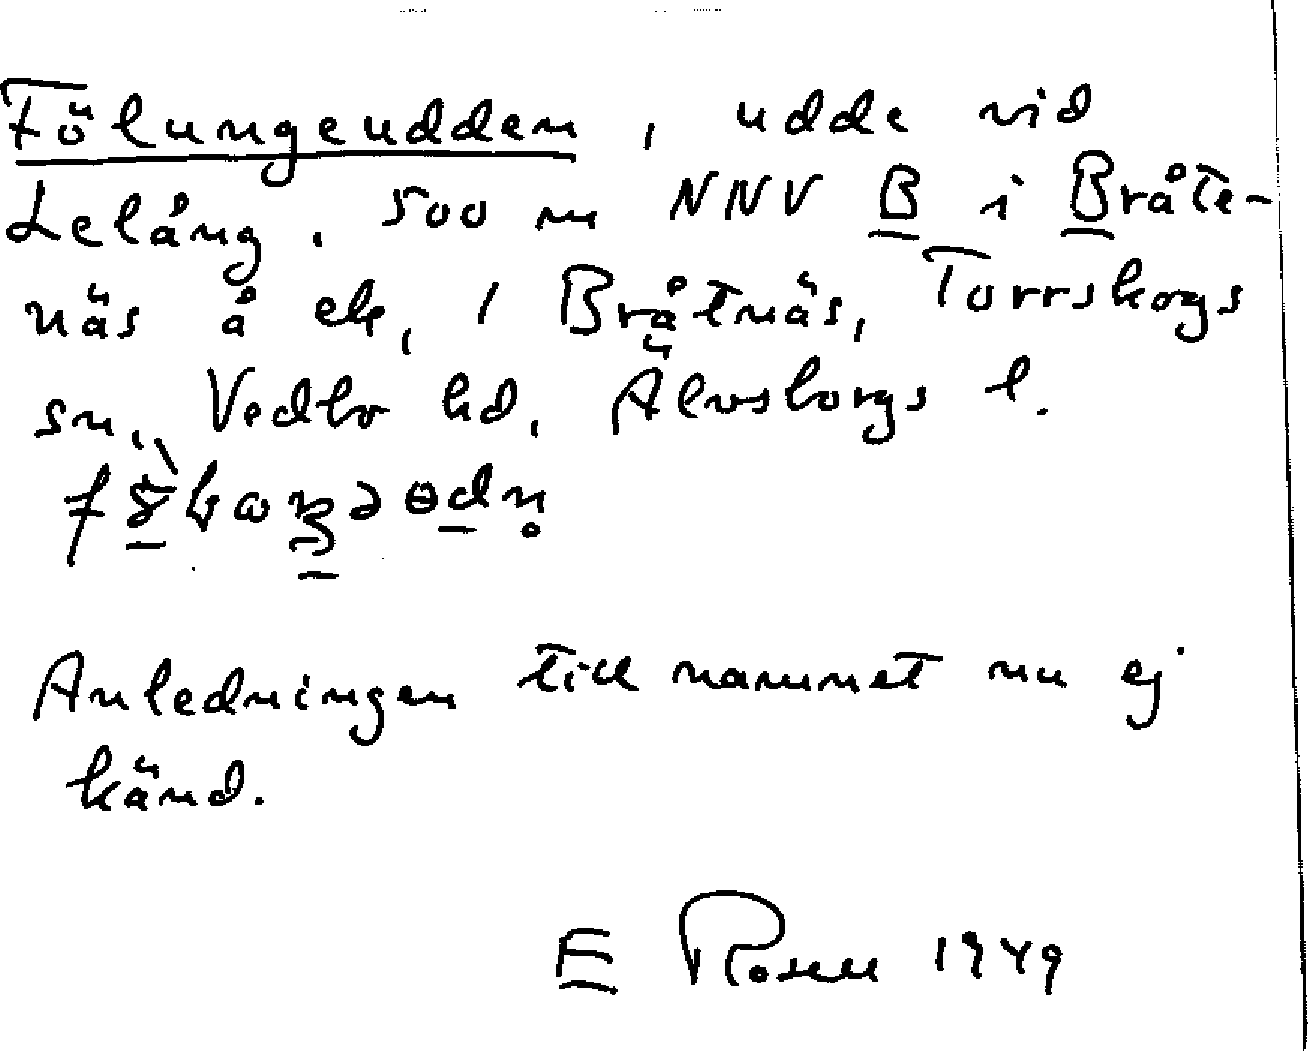 Fölungeudden, udde vid
Lelång. 500 m NNV B i Bråte-
näs å ek, 1 Bråtnäs, Torrskogs
sn, Vedbo hd, Älvsborgs l.
Anledningen till namnet nu ej
känd.
E Rosell 1949